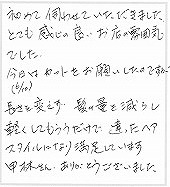 初めて伺わせていただきました
とても感じの良いお店の雰囲気
でした。
今日はカットをお願いしたのですが
(6/10)
長さを変えず 髪の量を減らし
軽くしてもらうだけで 違ったヘア
スタイルになり満足しています
甲林さん、ありがとうございました